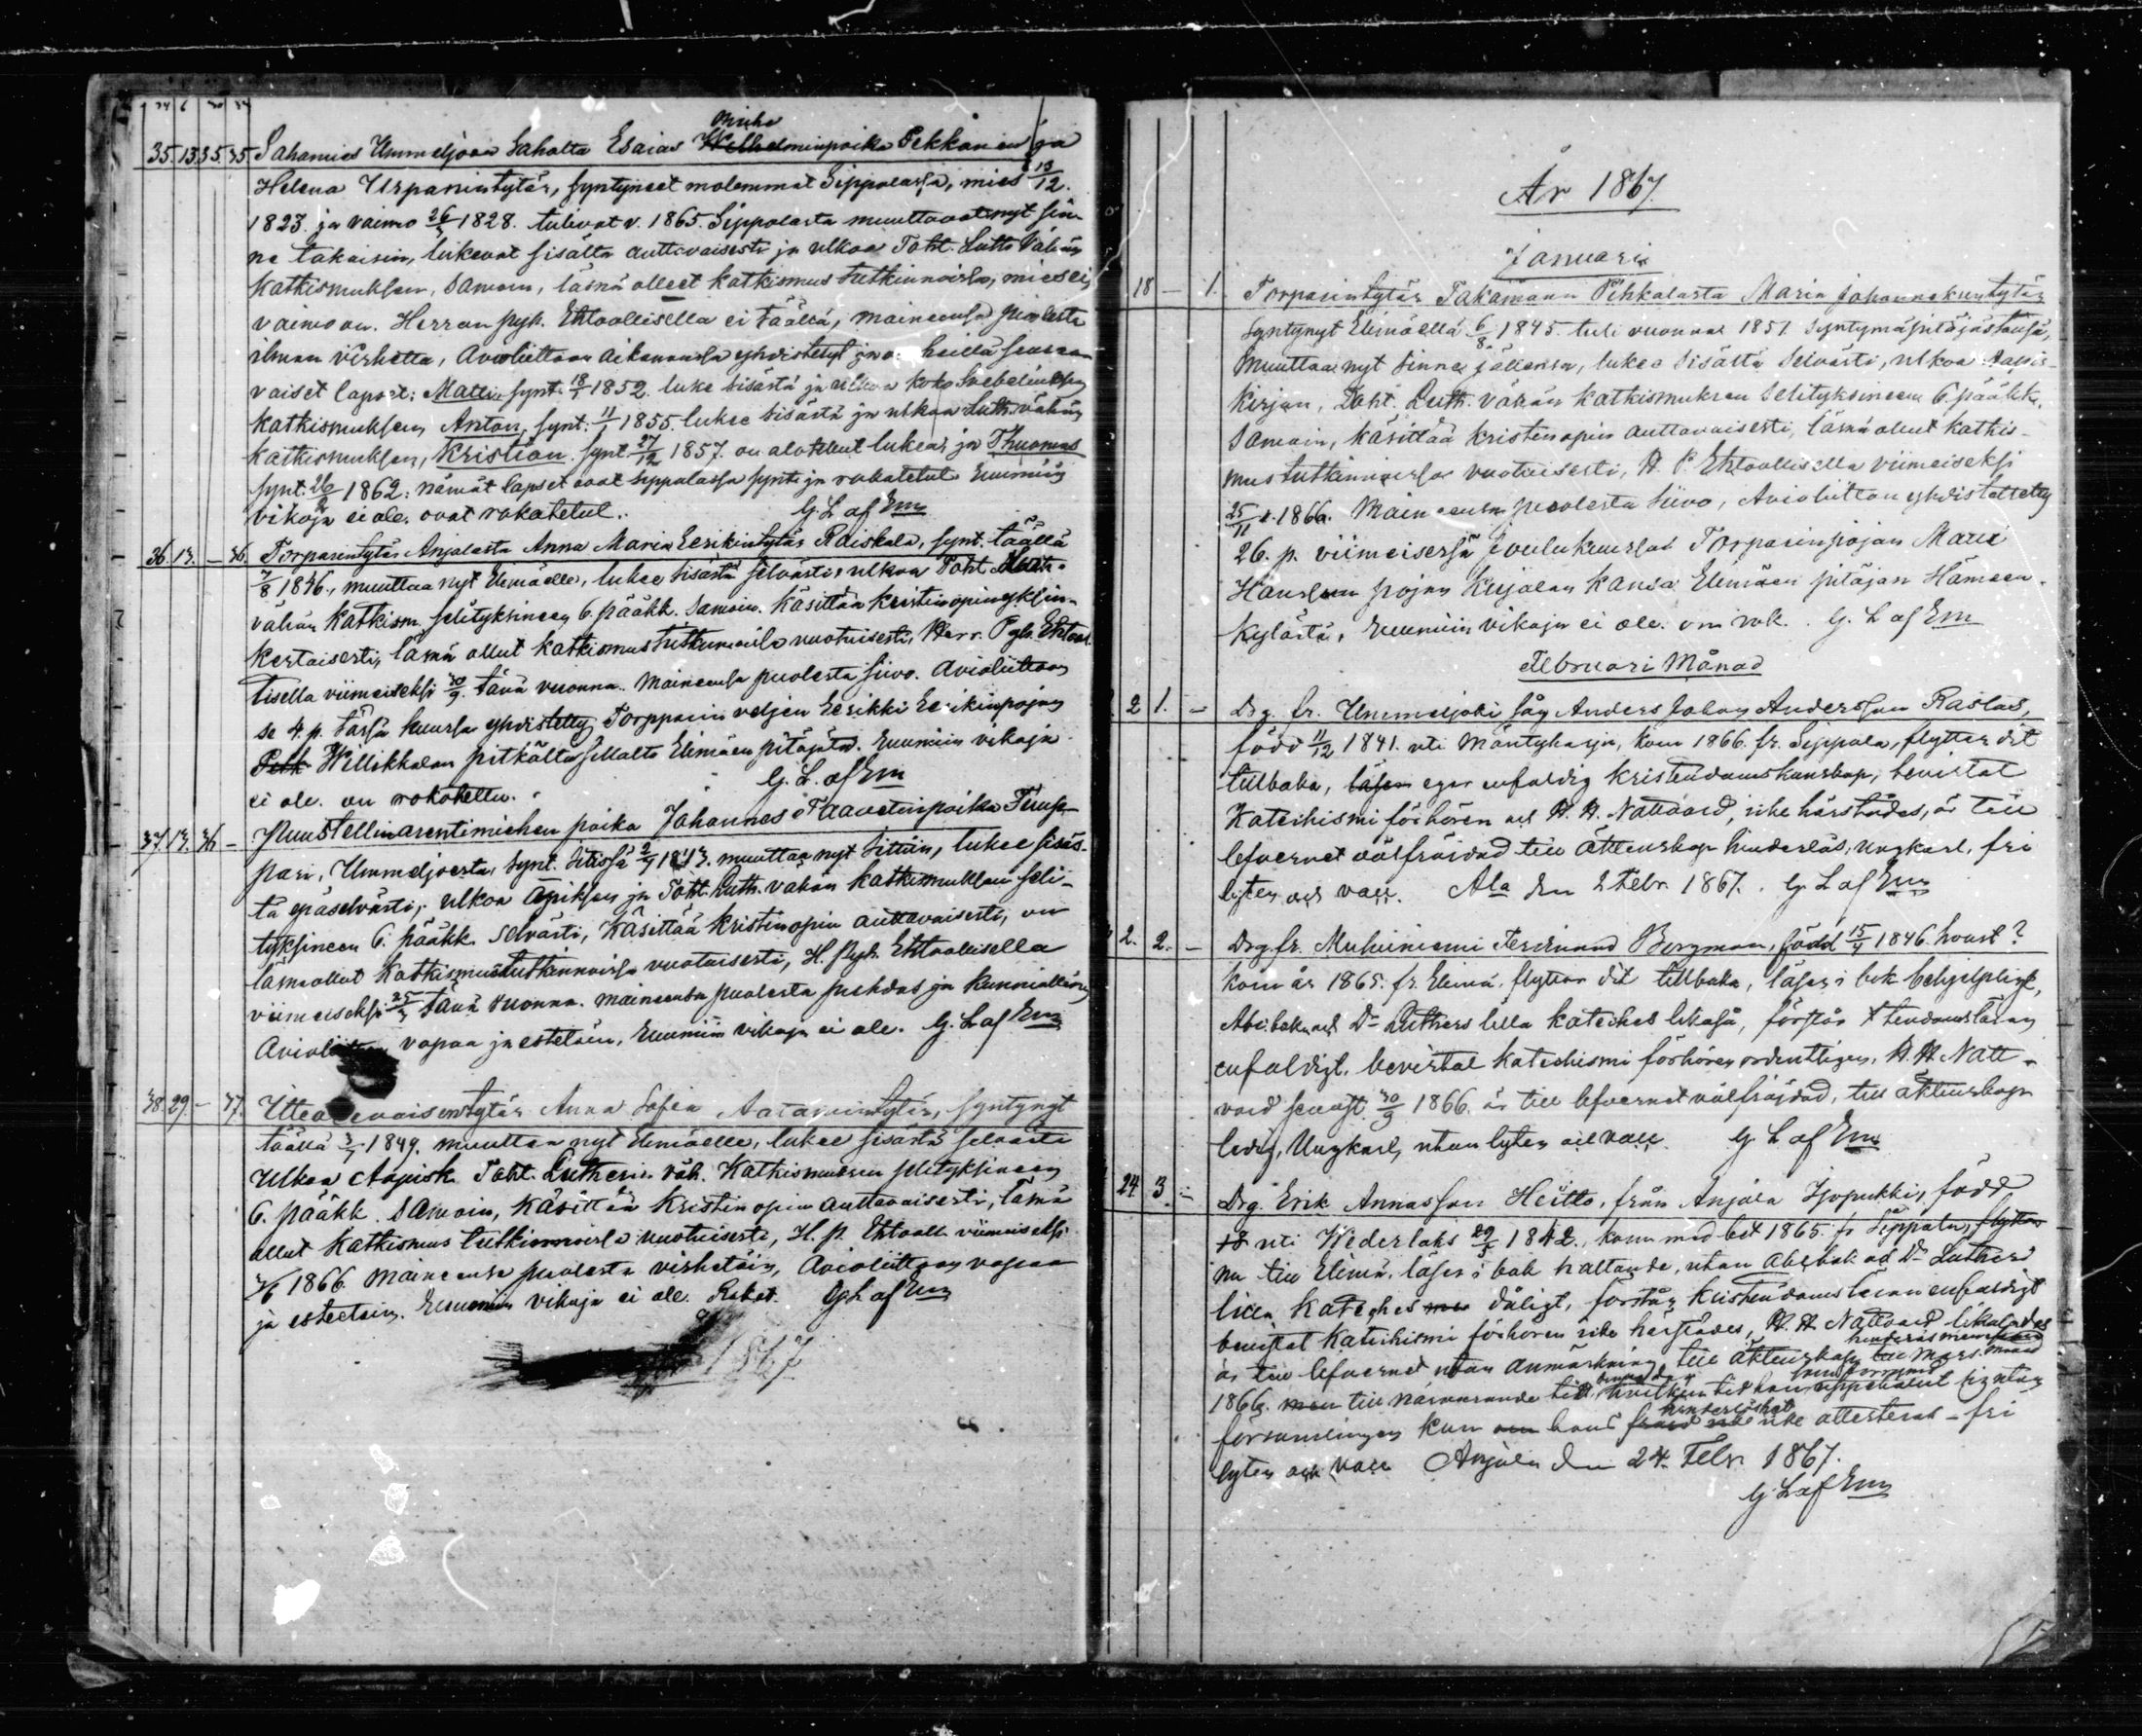 35. 13 35. 35. Sahamies Ummeljoen Sahalta Esaias Wilhelminpoika Pekkanen ja
Helena Urpanintytär, syntyneet molemmat Sippolassa, mies 13/12.
1823. ja vaimo 26/ 1828. tulivat v. 1865. Sippolasta muuttavat nyt sin-
ne takaisin, lukevat sisältä auttavaisesti ja ulkoa Toht. Luth. Vähän
Katkismuksen, Samoin, läsnä olleet Katkismus tutkinnoissa, mies ei,
vaimo on. Herran pyh. Ehtoollisella ei täällä, maineensa puolesta
ilman virhettä, Avioliittoon aikanansa yhdistetyt ja o. heillä seuraa-
vaiset lapset: Matti, synt. 18/1 1852. luke sisästä ja ulkoa koko Svebeliuksen
Katkismuksen, Anton, synt. 11/1 1855. lukee sisästä ja ulkoa Luth. vähän
Katkismuksen, Kristian synt. 27/12 1857. on alottanut lukea, ja Thuomas
synt. 26/ 1862: nämät lapset ovat Sippolassa synt. ja rokotetut Ruumiin
vikoja ei ole. ovat rokotetut. G. L. af Em
36. 13. – 36. Torparintytär Anjalasta Anna Maria Eerikintytär Raiskala, synt. täällä
/8 1846., muuttaa nyt Elimäelle, lukee sisästä selvästi, ulkoa Toht.
vähän Katkism. selityksineen 6. pääkk. Samoin. Käsittää kristinopin yksin-
kertaisesti, läsnä ollut Katkismus tutkinnoisla vuotuisesti, Herr. Pyh. Ehtool-
lisella viimeiseksi 30/9. tänä vuonna. maineensa puolesta siivo. Avioliittoon
se 4. p. tässä kuussa yhdistetty Torpparin veljen Eerikki Eerikinpojan
Willikkalan pitkältä sillalta Elimäen pitäjätä. Ruumiin vikoja
ei ole. on rokotettu. G. L. af Em
37. 13. 36 – Puustellin arentimiehen poika Johannes Taavetinpoika
pari, Ummeljoesta, synt. Sitissä 2/9 1843. muuttaa nyt Sittiin, lukee sisäs-
tä epäselvästi, ulkoa Apiksen ja Toht. Luth. vähän Katkismuksen seli-
tyksineen 6. pääkk. selvästi, Käsittää kristinopin auttavaisesti, on
läsnä ollut Katkismustutkinnoissa vuotuisesti, H. Pyh. Ehtoollisella
viimeiseksi 25/3 tänä vuonna. maineensa puolesta puhdas ja kunniallinen,
Avioliittoon vapaa ja esteetöin, Ruumiin vikoja ei ole. G. L. af Em
38. 29. – 37. Anna Sofia Aatamintytär, syntynyt
täällä 1849. muuttaa nyt Elimäelle, lukee sisästä selvästi
Ulkoa Aapisk. Toht. Lutheri. väh. Katkismuksen selityksineen
6. pääkk. Samoin, Käsittää Kristinopin auttavaisesti, läsnä
ollut Katkismus tutkinnoissa vuotuisesti, H. p. Ehtooll. viimeiseksi
1866. maineensa puolesta virhetöin, Avioliittoon vapaa
ja esteetöin. Ruumiin vikoja ei ole. Rokot. G. L. af Em
1867
År 1867.
Januari
18 – 1. Torparintytär Takamaan Pihkalasta Maria Johanneksentytär
syntynyt Elimäellä 6/8. 1845. tuli vuonna 1851. syntymäpitäjästänsä,
muuttaa nyt sinne jällensä, lukee sisästä selvästi, ulkoa Aapis-
kirjan, Toht. Luth. vähän Katkismuksen selityksineen 6. pääkk.
Samoin, käsittää kristinopin auttavaisesti, läsnä ollut Kathis-
mus tutkinnoissa vuotuisesti, H. P. Ehtoollisella viimeiseksi
25/11 1866. Maineensa puolesta siivo, Avioliittoon yhdistetty
26. p. viimeisessä joulukuussa Torparinpojan Matti
Hansson pojan Kujalan kansa Elimäen pitäjän Hämeen-
kylästä, Ruumiin vikoja ei ole. on rok. G. L af Em
Februari Månad
2 1. – Drg. fr. Ummeljoki såg Anders Johan Andersson Rastas,
född 11/12 1841. uti Mäntyharju, kom 1866. fr. Sippola, flyttar dit
tillbaka, läser eger enfaldig kristendomskunskap, bevistat
Katechismi förhören och H. H. Nattvard, icke härstädes, är till
lefvernet välfräjdad till äktenskap hinderlös, ungkarl, fri
lyten och vacc. Ala den 2 Febr. 1867. G. L af Em
2. 2. – Drg fr. Muhiniemi Ferdinand Borgman, född 15/4 1846. hvart?
kom år 1865. fr. Elimä, flyttar dit tillbaka, läser i bok behjelpligt,
Abcboken och Dr Luthers lilla Kateches likaså, förstår xtendomsläran
enfaldigt. bevistat Katechismi förhören ordentligen, H. H. Natt-
vard senast 30/9 1866. är till lefvernet välfräjdad, till äktenskap
ledig, Ungkarl, utan lyten och vacc. G. L af Em
24 3. – Drg. Erik Annasson Heitto, från Anjala Ijopukki, född
18 uti Wederlaks 29/5 1842., kom med bet 1865. fr. Sippola, flyttar
nu till Elimä, läser i bok haltande, utan Abcbok och Dr Luthers
lilla Kateches dåligt, förstår Kristendomsläran enfaldigt
bevistat Katechismi förhören icke härstädes, H. H. Nattvard likaledes
är till lefvernet utan anmärkning, till äktenskap till Mars månad
1866. men till närvarande tid, hvilken tid han uppehållit sig utom
församlingen kan hans hinderlöshet icke attesteras – fri
lyten och vacc Anjala den 24. Febr. 1867.
G. L af Em